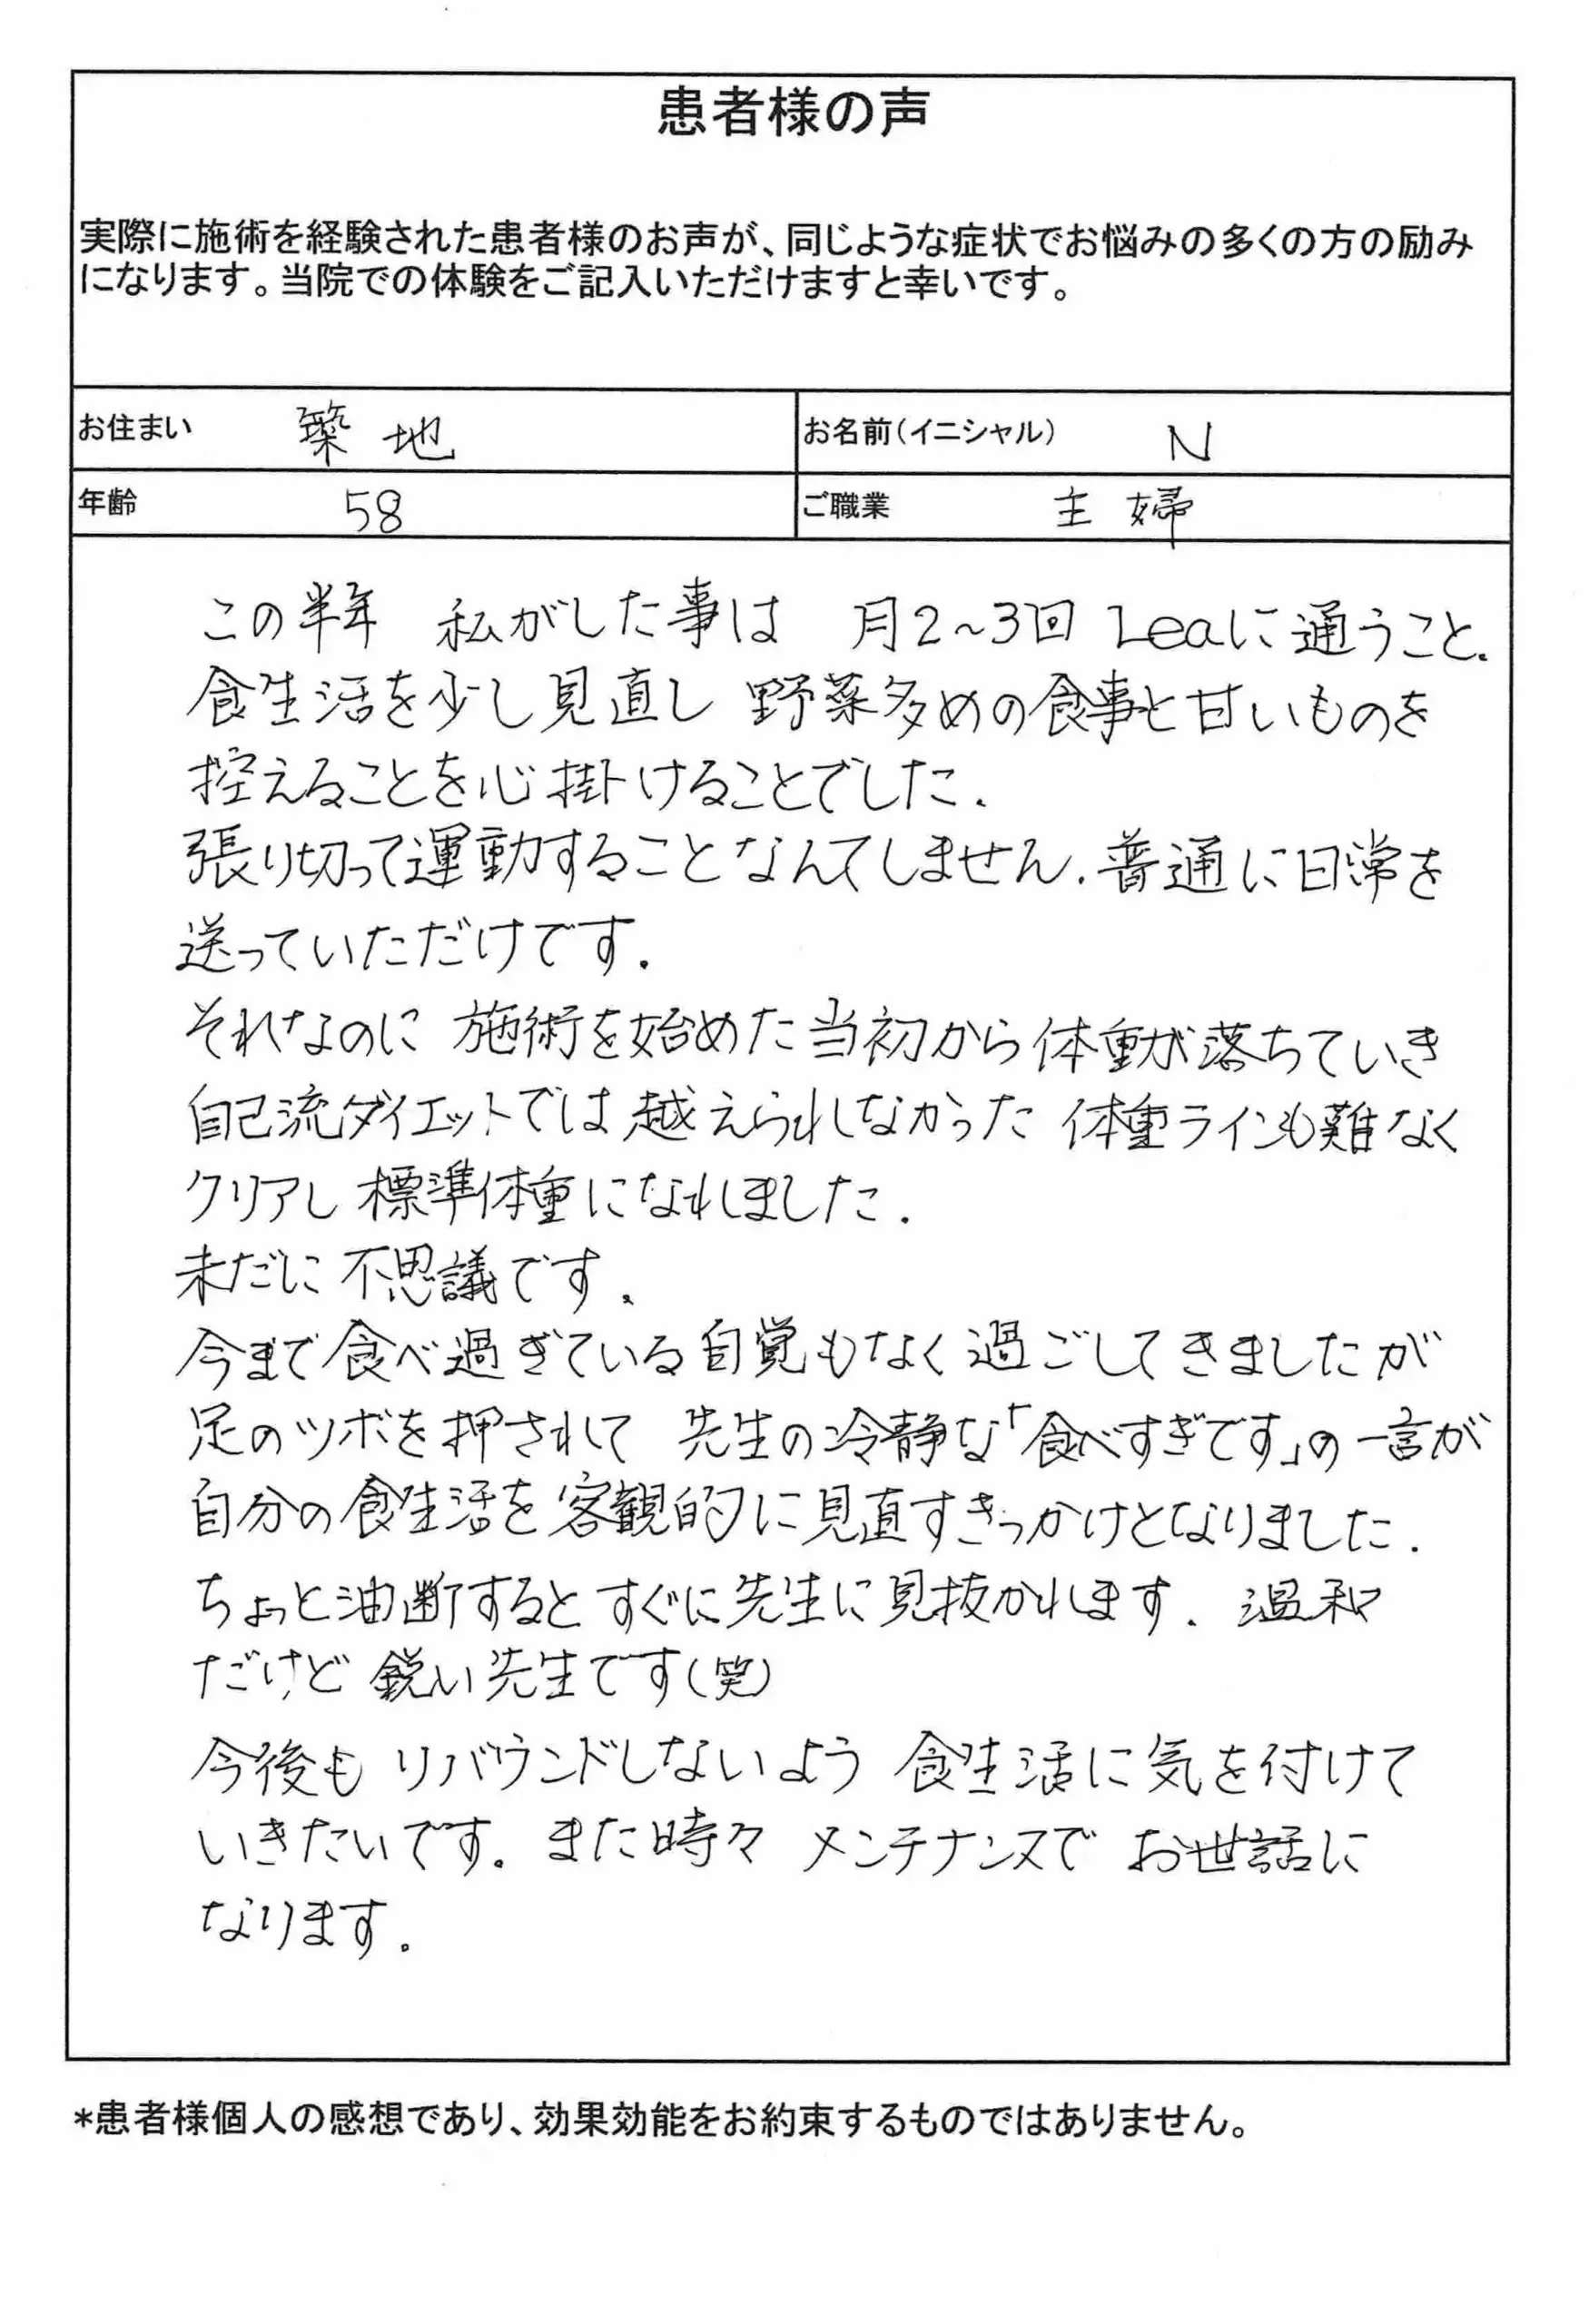 患者様の声
実際に施術を経験された患者様のお声が、同じような症状でお悩みの多くの方の励み
になります。当院での体験をご記入いただけますと幸いです。
お住まい 築地 お名前(イニシャル) N
年齢 58 ご職業 主婦
この半年 私がした事は 月2~3回 Leaに通うこと.
食生活を少し見直し 野菜多めの食事と甘いものを
控えることを心掛けることでした.
張り切って運動することなんてしません.普通に日常を
送っていただけです.
それなのに 施術を始めた当初から体重が落ちていき
自己流ダイエットでは越えられしなかった 体重ラインも難なく
クリアし標準体重になれしました.
未だに不思議です.
今まで食べ過ぎている自覚もなく過ごしてきましたが
足のツボを押されて 先生の冷静な「食べすぎです」の一言が
自分の食生活を客観的に見直すきっかけとなりました.
ちょっと油断するとすぐに先生に見抜かれます. 温和
だけど鋭い先生です(笑)
今後も リバウンドしないよう 食生活に気を付けて
いきたいです。また時々 メンテナンスで お世話に
なります.
*患者様個人の感想であり、効果効能をお約束するものではありません。